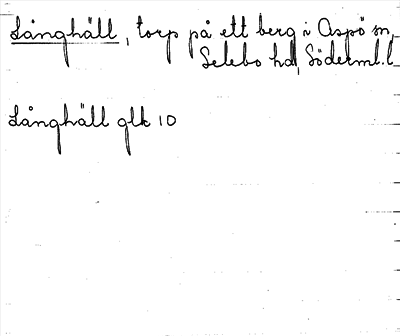 Långhäll, torp på ett berg i Aspö sn,
Selebo hd, Söderml. l.
Långhäll glk 10